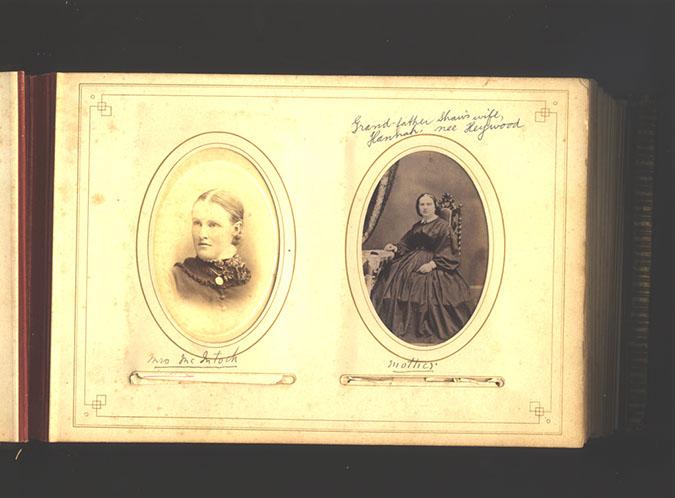 Grand-father Shaw's wife,
Hannah, nee Heywood
Mrs McIntosh
Mother